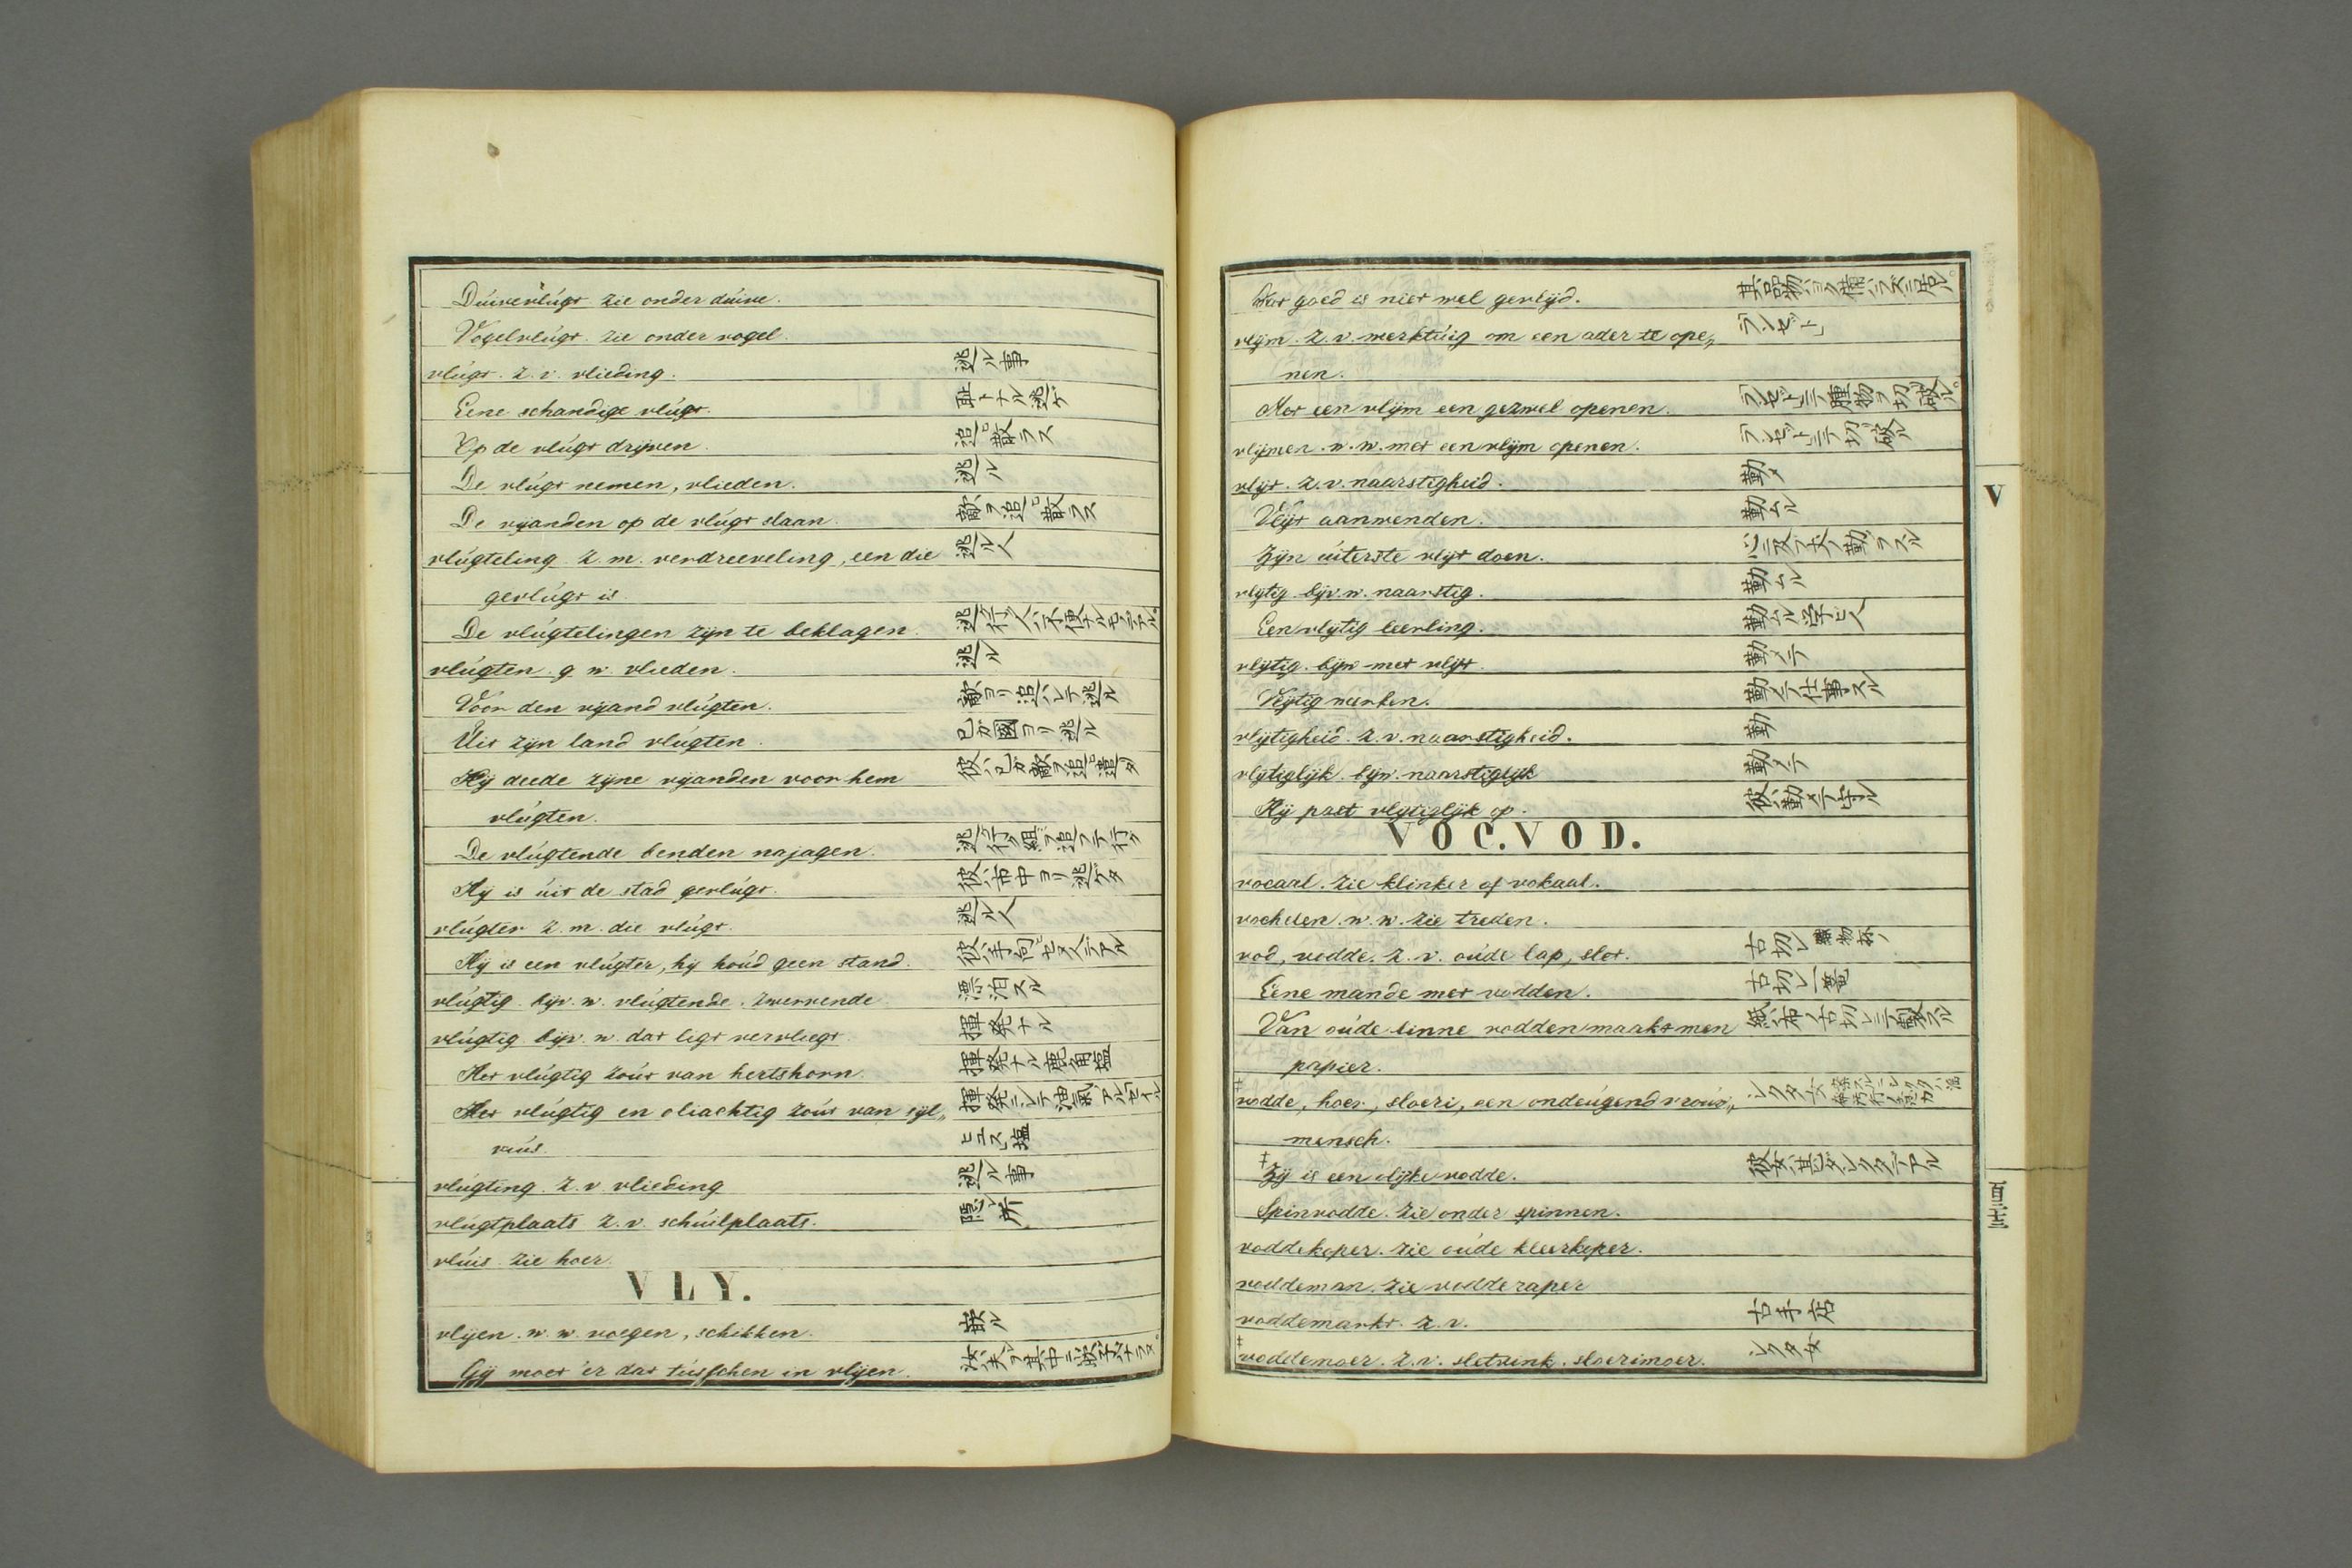 Duivevlúgt zie onder dúive.
Vogelvlúgt. zie onder vogel.
vlúgt. z. v. vlieding. 逃ル事
Eene schandige vlúgt. 耻トナル逃ケ
Op de vlúgt dryven. 追ヒ散ラス
De vlúgt nemen, vlieden. 逃ル
De vyanden op de vlúgt slaan. 敵ヲ追ヒ散ラス
vlúgteling. z. m. verdreeveling, een die 逃ル人
gevlúgt is.
De vlúgtelingen zyn te beklagen. 逃行ク人ハ不便ナルモノデアル。
vlúgten. g. w. vlieden. 逃ル
Voor den vyand vlúgten. 敵ヨリ追ハレテ逃ル
Uit zyn land vlúgten. 己カ國ヨリ逃ル
Hij deede zyne vyanden voor hem 彼ハ己カ敵ヲ追ヒ
vlúgten.
De vlúgtende benden najagen. 逃行ク組ヲ追フテ行ク
Hij is úit de stad gevlúgt. 彼ハ市中ヨリ逃ケタ
vlúgter z. m. die vlúgt. 逃ル人
Hij is een vlúgter, hij houd geen stand. 彼ハ手向ヒセヌ人デアル
vlúgtig. byv. w. vlúgtende. zwervende 漂泊スル
vlúgtig. byv. w. dat ligt vervliegt. 揮発ナル
Het vlúgtig zout van hertshorn. 揮発ナル鹿角塩
Het vlúgtig en oliachtig zout van syl„ 揮発ニシテ油氣アル
viús. 塩
vlúgting. z. v. vlieding 逃ル事
vlúgtplaats z. v. schúilplaats. 隠レ所
vlúis. zie hoer.
VLY.
vlijen. w. w. voegen, schikken. 嵌ル
Gij moet 'er dat tússchen in vlijen. 汝ハ夫レヲ其中ニ
Het goed is niet wel gevlijd. 其品物ハヨク備ハラズニ居ル。
vlijm. z. v. werktúig om een ader te ope„ ランセット
nen.
Met een vlijm een gezwel openen. ランセットニテ腫物ヲ切破ル。
vlijmen. w. w. met een vlijm openen. ランセットニテ切破ル
vlijt. z. v. naarstigheid. 勤メ
Vlijt aanwenden. 勤ムル
Zijn úiterste vlijt doen. 心ニ及フ丈ノ勤ヲスル
vlijtig. bijv. w. naarstig. 勤ムル
Een vlijtig leerling. 勤ムル学ヒ人
vlijtig. bijw. met vlijt. 勤メテ
Vlijtig werken. 勤メテ仕事スル
vlijtigheid. z. v. naarstigheid. 勤
vlijtiglijk. bijw. naarstiglijk 勤メテ
Hij past vlijtiglijk op. 彼ハ勤メテ守ル
VOC. VOD.
vocaal. zie klinker of vokaal.
vochelen. w. w. zie treden.
vod, vodde. z. v. oúde lap, slet. 古切レ 織物杯ノ
Eene mande met vodden. 古切レ一篭
Van oúde linne vodden maakt men 紙ハ布ノ古切レニテ製スル
papier.
‡ vodde, hoer, sloeri, een ondeúgend vroúw„ シタクタ女
mensch.
‡ Zij is een vodde. 彼女ハ
Spinvodde. zie onder spinnen.
voddekoper. zie oúde kleerkoper.
voddeman. zie vodderaper
voddemarkt. z. v. 古手店
‡ voddemoer. z. v. sletvink. sloerimoer.
V
百三十三